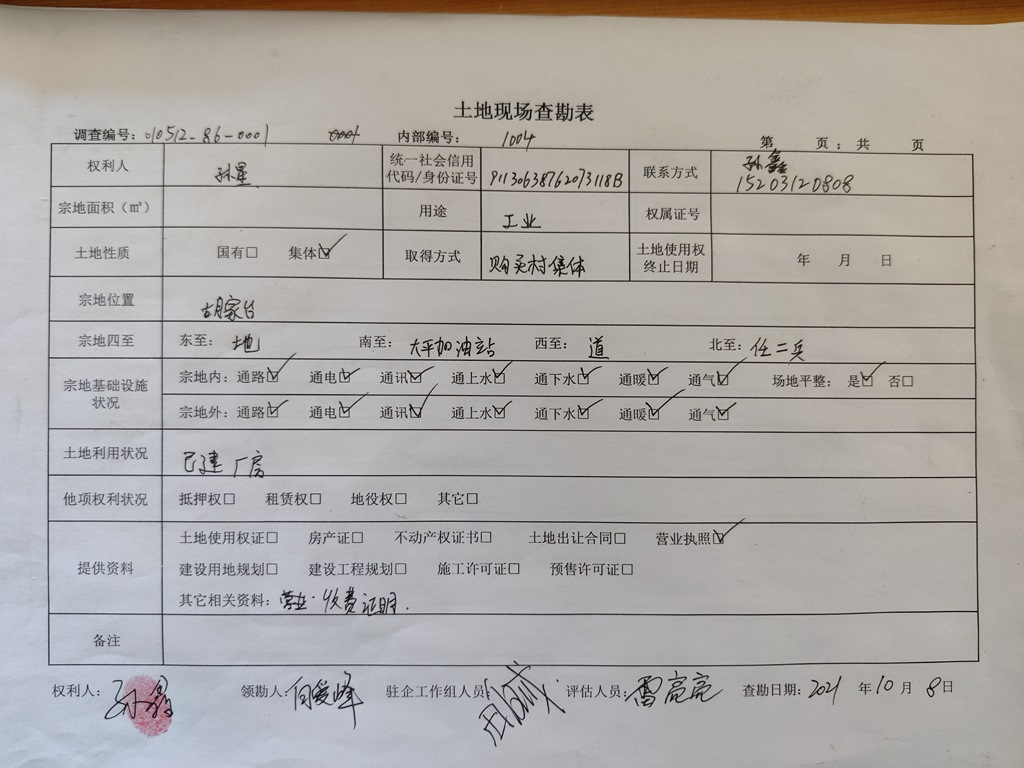 土地现场查勘表
调查编号：010512-86-0001 0001 内部编号： 1004 第 页；共 页
权利人 孙星 统一社会信用代码/身份证号 91130638762073118B 联系方式 孙鑫 15203120808
宗地面积（㎡） 用途 工业 权属证号
土地性质 国有□ 集体☑ 取得方式 购买村集体 土地使用权终止日期 年 月 日
宗地位置 胡家台
宗地四至 东至： 地 南至： 大平加油站 西至： 道 北至： 任二兵
宗地基础设施状况 宗地内：通路☑ 通电☑ 通讯☑ 通上水☑ 通下水☑ 通暖☑ 通气☑ 场地平整： 是☑ 否□
宗地外：通路☑ 通电☑ 通讯☑ 通上水☑ 通下水☑ 通暖☑ 通气☑
土地利用状况 已建厂房
他项权利状况 抵押权□ 租赁权□ 地役权□ 其它□
提供资料 土地使用权证□ 房产证□ 不动产权证书□ 土地出让合同□ 营业执照☑
建设用地规划□ 建设工程规划□ 施工许可证□ 预售许可证□
其它相关资料：营业·收费证明.
备注
权利人： 孙鑫 领勘人： 爱峰 驻企工作组人员： 评估人员： 雷亮亮 查勘日期： 2021 年 10 月 8 日